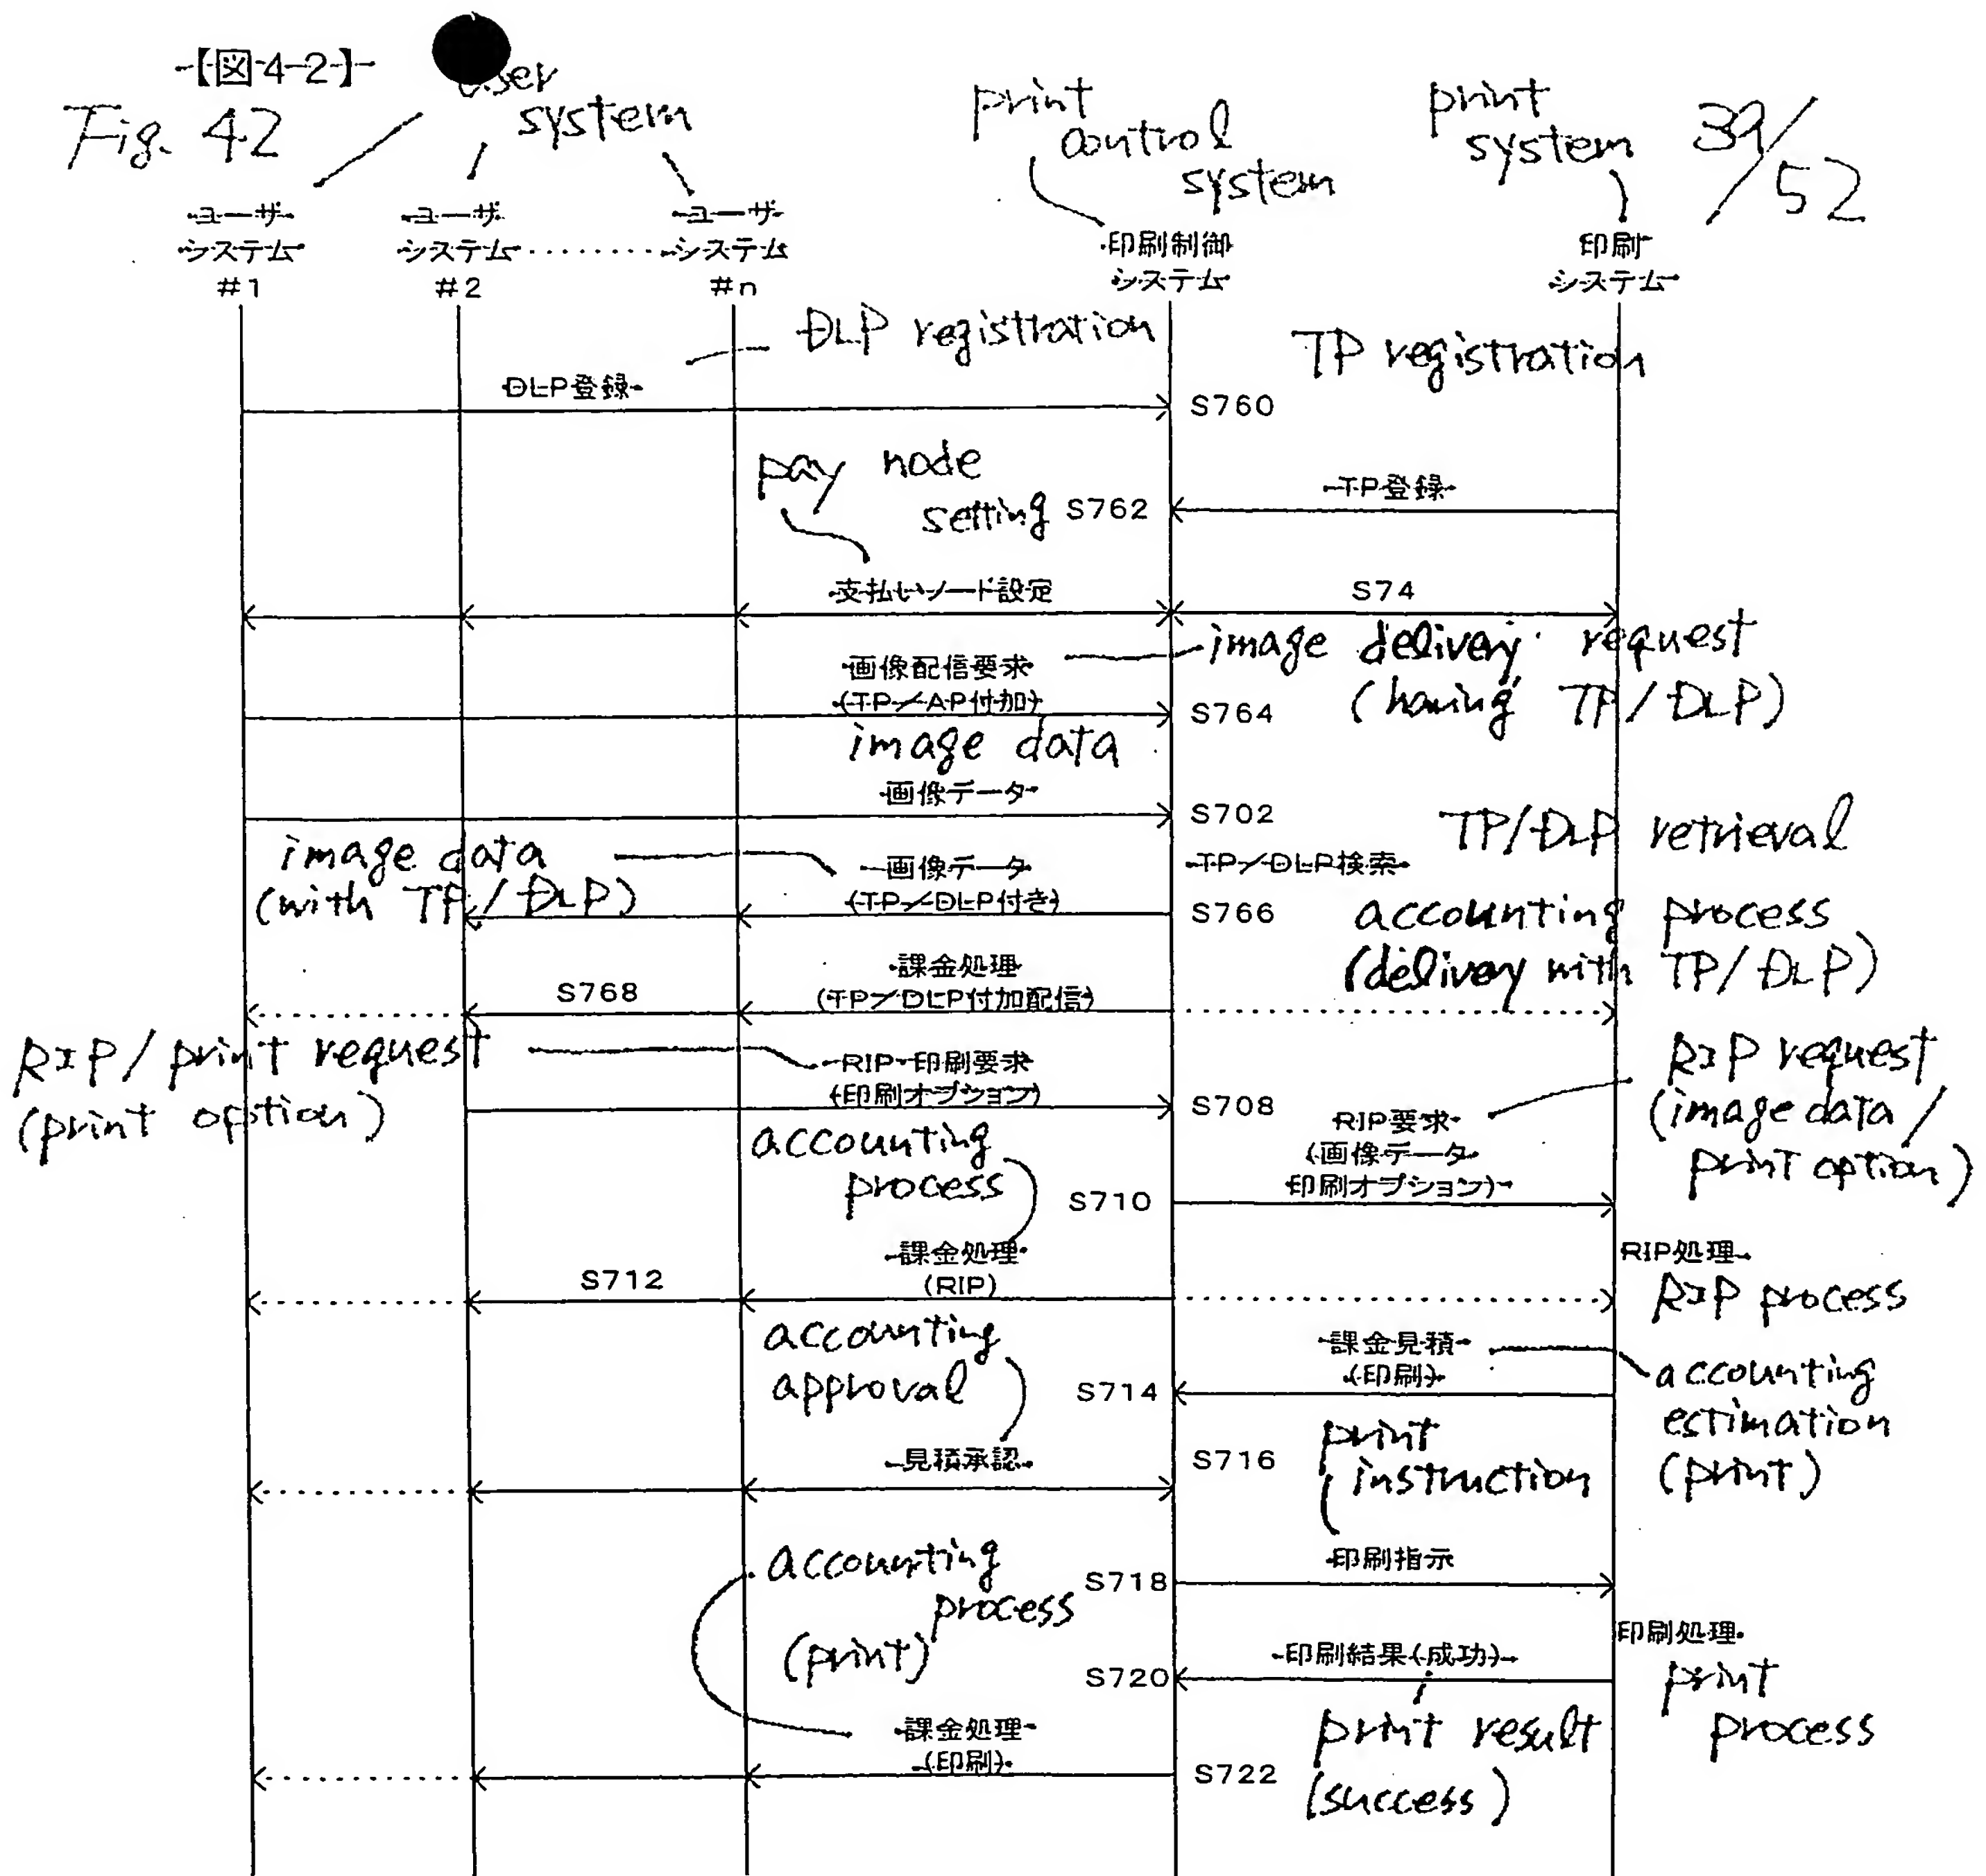 【図42】
Fig. 42
user
system
print
control
system
print
system
39/52
ユーザ
システム
#1
ユーザ
システム
#2
ユーザ
システム
#n
印刷制御
システム
印刷
システム
DLP registration
TP registration
DLP登録
S760
pay node
setting
S762
TP登録
支払いノード設定
S74
画像配信要求
(TP/AP付加)
image delivery request
(having TP/DLP)
S764
image data
画像データ
S702
TP/DLP retrieval
image data
(with TP/DLP)
画像データ
(TP/DLP付き)
TP/DLP検索
S766
accounting process
(delivery with TP/DLP)
課金処理
(TP/DLP付加配信)
S768
RIP/print request
(print option)
RIP・印刷要求
(印刷オプション)
S708
RIP request
(image data/
print option)
RIP要求
(画像データ
印刷オプション)
accounting
process
S710
課金処理
(RIP)
S712
RIP処理
RIP process
accounting
approval
課金見積
(印刷)
S714
accounting
estimation
(print)
見積承認
S716
print
instruction
印刷指示
accounting
process
(print)
S718
印刷処理
print
process
印刷結果(成功)
S720
print result
(success)
課金処理
(印刷)
S722